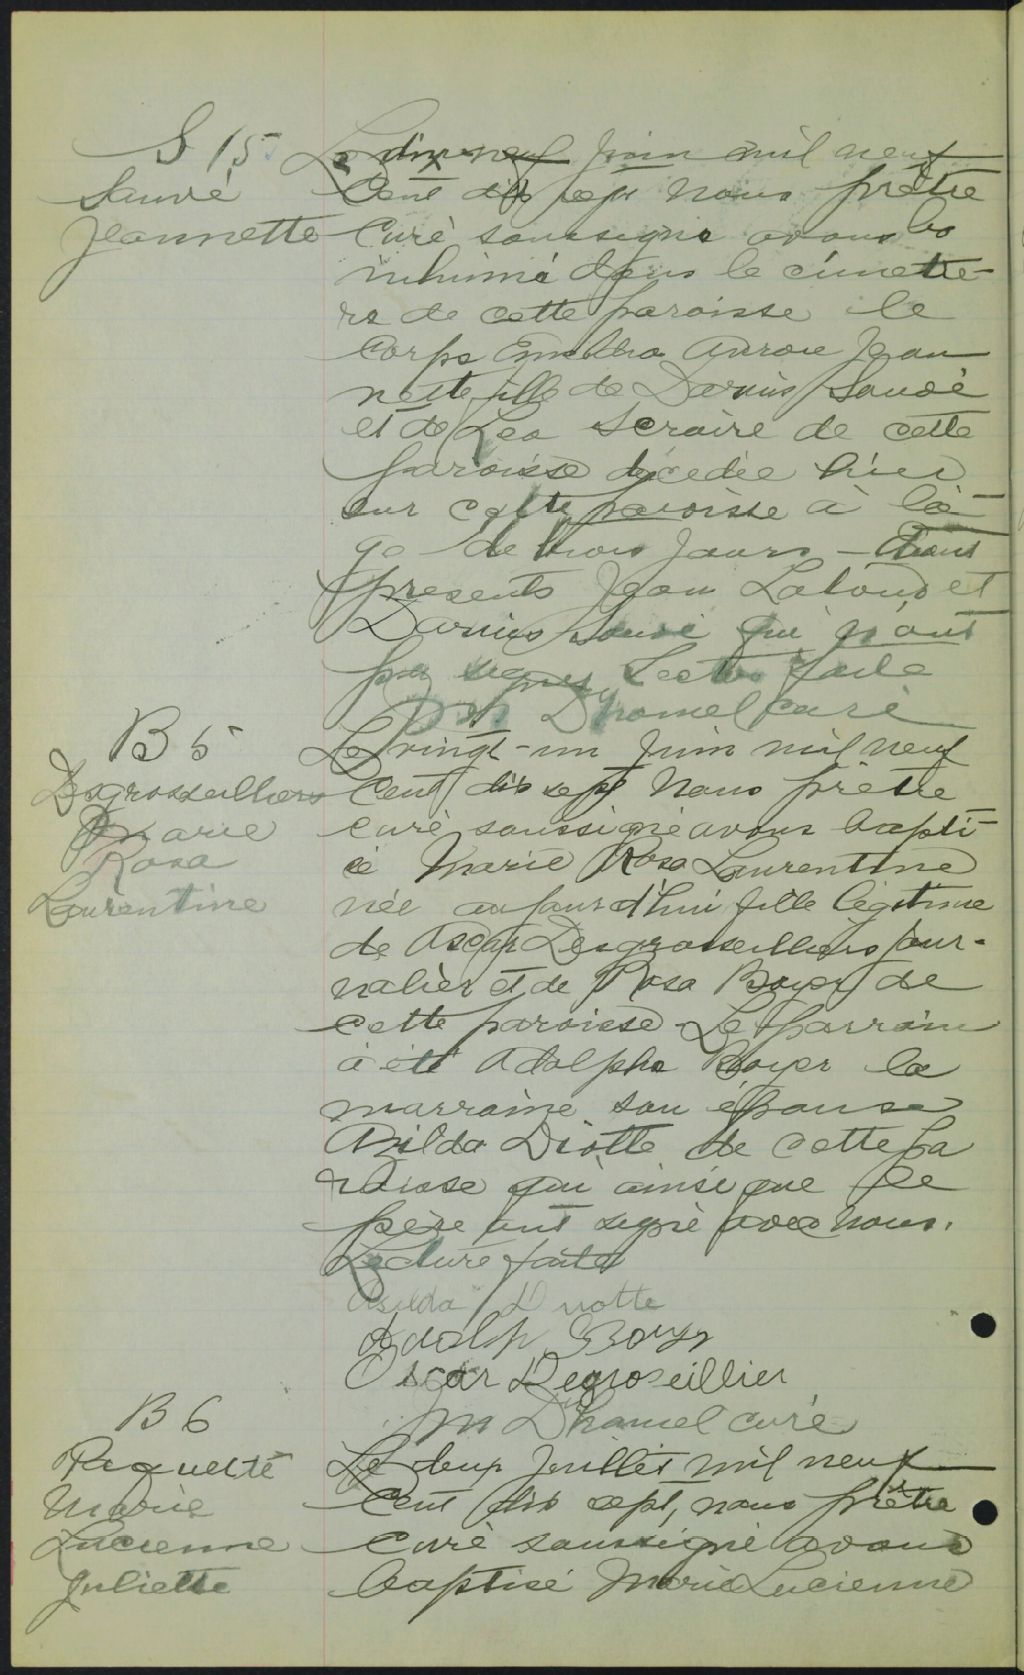 S 15
Sauvé
Jeannette
Le dix-neuf Juin mil neuf
Cent dix sept Nous prêtre
Curé soussigné avons
inhumé dans le cimetie-
re de cette paroisse le
Corps Aurore Jean
nette fille de Darius Sauvé
et de Lea de cette
paroisse décédée hier
sur cette paroisse à l'â-
ge de trois jours —
presents Jean Lalonde et
Darius Sauvé qui n'ont
pu signer Lecture faite
Duhamel curé
B 5
Desgroseilliers
Marie
Rosa
Laurentine
Le vingt-un Juin mil neuf
Cent dix sept Nous prêtre
curé soussigné avons bapti-
sé Marie Rosa Laurentine
née aujourd'hui fille légitime
de Oscar Desgroseilliers jour-
nalier et de Rosa Boyer de
cette paroisse - Le parrain
à été Adolphe Boyer la
marraine son épouse
Azilda Diotte de cette pa
roisse qui ainsi que le
père ont signé avec nous.
Lecture faite
Asilda Diotte
Adolph Boyer
Oscar Degroseillier
M Dhamel curé
B 6
Paquette
Marie
Lucienne
Juliette
Le deux Juillet mil neuf
Cent dix sept, nous prêtre
curé soussigné avons
baptisé Marie Lucienne